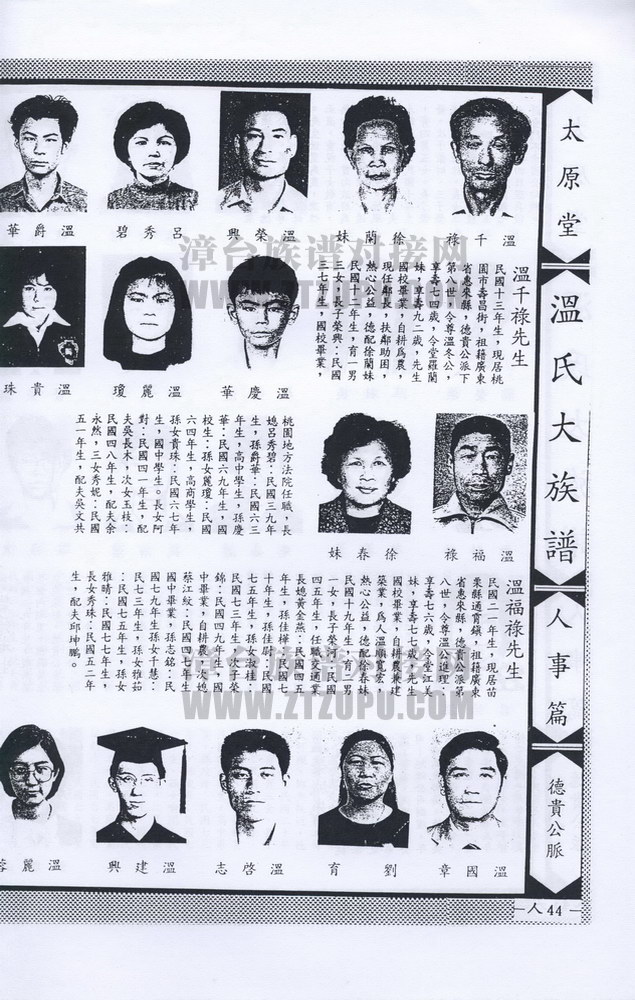 太原堂
溫氏大族譜
人事篇
德貴公脈
—人44—
溫千祿
徐蘭妹
溫榮興
呂秀碧
溫爵華
漳台族谱对接网
WWW.ZTZUPU.COM
溫千祿先生
民國十三年生，現居桃
園市壽昌街，祖籍廣東
省惠來縣，德貴公派下
第八世，令尊溫冬公，
享壽七四歲，令堂羅蘭
妹，享壽九二歲，先生
國校畢業，自耕爲農，
現任鄰長，扶鄰助困，
熱心公益，德配徐蘭妹
民國十二年生，育一男
三女，長子榮興：民國
三七年生，國校畢業，
溫慶華
溫麗瓊
溫貴珠
桃園地方法院任職，長
媳呂秀碧：民國三九年
生，孫爵華：民國六三
年生，高中學生，孫慶
華：民國六九年生，國
校生：孫女麗瓊：民國
六四年生，高商學生，
孫女貴珠：民國六七年
生，國中學生。長女阿
對：民國四一年生，配
夫吳長木，次女玉枝：
民國四八年生，配夫余
永然，三女秀妮：民國
五一年生，配夫吳文共
溫福祿
徐春妹
溫福祿先生
民國二一年生，現居苗
栗縣通霄鎮，祖籍廣東
省惠來縣，德貴公派第
八世，令尊溫公進理：
享壽七六歲，令堂江美
妹，享壽七七歲，先生
國校畢業，自耕農兼建
築業，爲人溫順寬宏，
熱心公益，德配徐春妹
民國十九年生，育二男
一女，長子榮河：民國
四五年生，任職交通業
長媳黃金燕：民國四五
年生，孫佳樺：民國七
十年生，孫佳尉：民國
七五年生，孫女淑桂：
民國七三年生，次子榮
錦：民國四九年生，國
中畢業，自耕農，次媳
蔡江紋：民國四七年生
國中畢業，孫志銘：民
國七九年生，孫女千慧：
民七三年生，孫女雅茹
：民國七五年生，孫女
雅晴：民國七七年生，
長女秀珠：民國五二年
生，配夫邱坤鵬。
漳台族谱对接网
WWW.ZTZUPU.COM
溫國章
劉育
溫啓志
溫建興
溫麗容